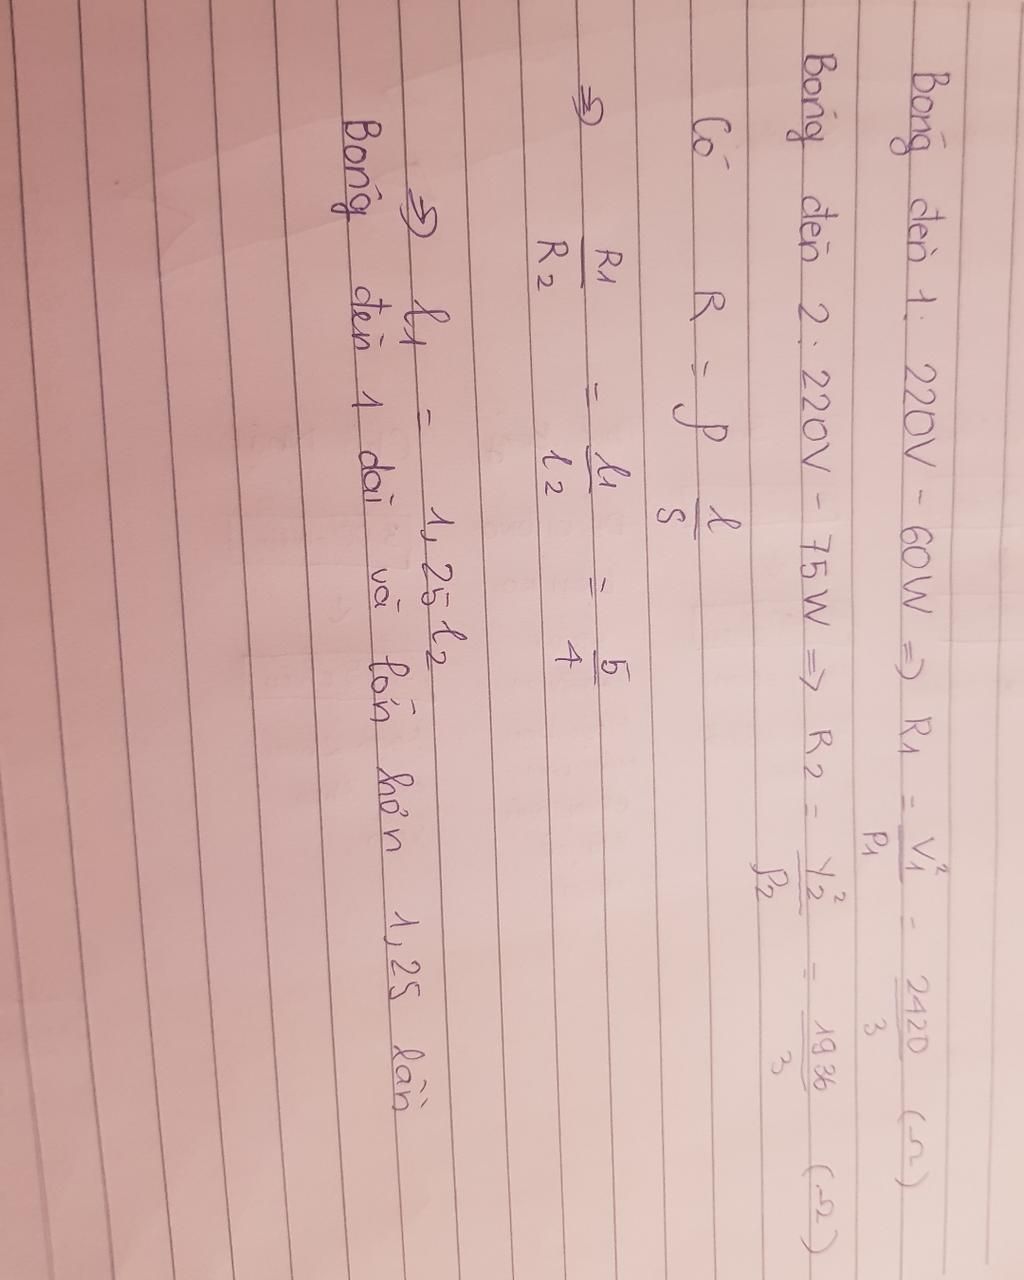 Bóng đèn 1: 220V - 60W => R1 = V1²/P1 = 2420/3 (Ω)
Bóng đèn 2: 220V - 75W => R2 = V2²/P2 = 1936/3 (Ω)
Có R = ρ l/S
=> R1/R2 = l1/l2 = 5/4
=> l1 = 1,25 l2
Bóng đèn 1 dài và lớn hơn 1,25 lần